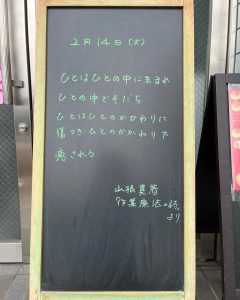 2月14日(火)
ひとはひとの中に生まれ
ひとの中でそだち
ひとはひとのかかわりに
傷つき ひとのかかわりで
癒される
山根寛著
「作業療法の詩」
より